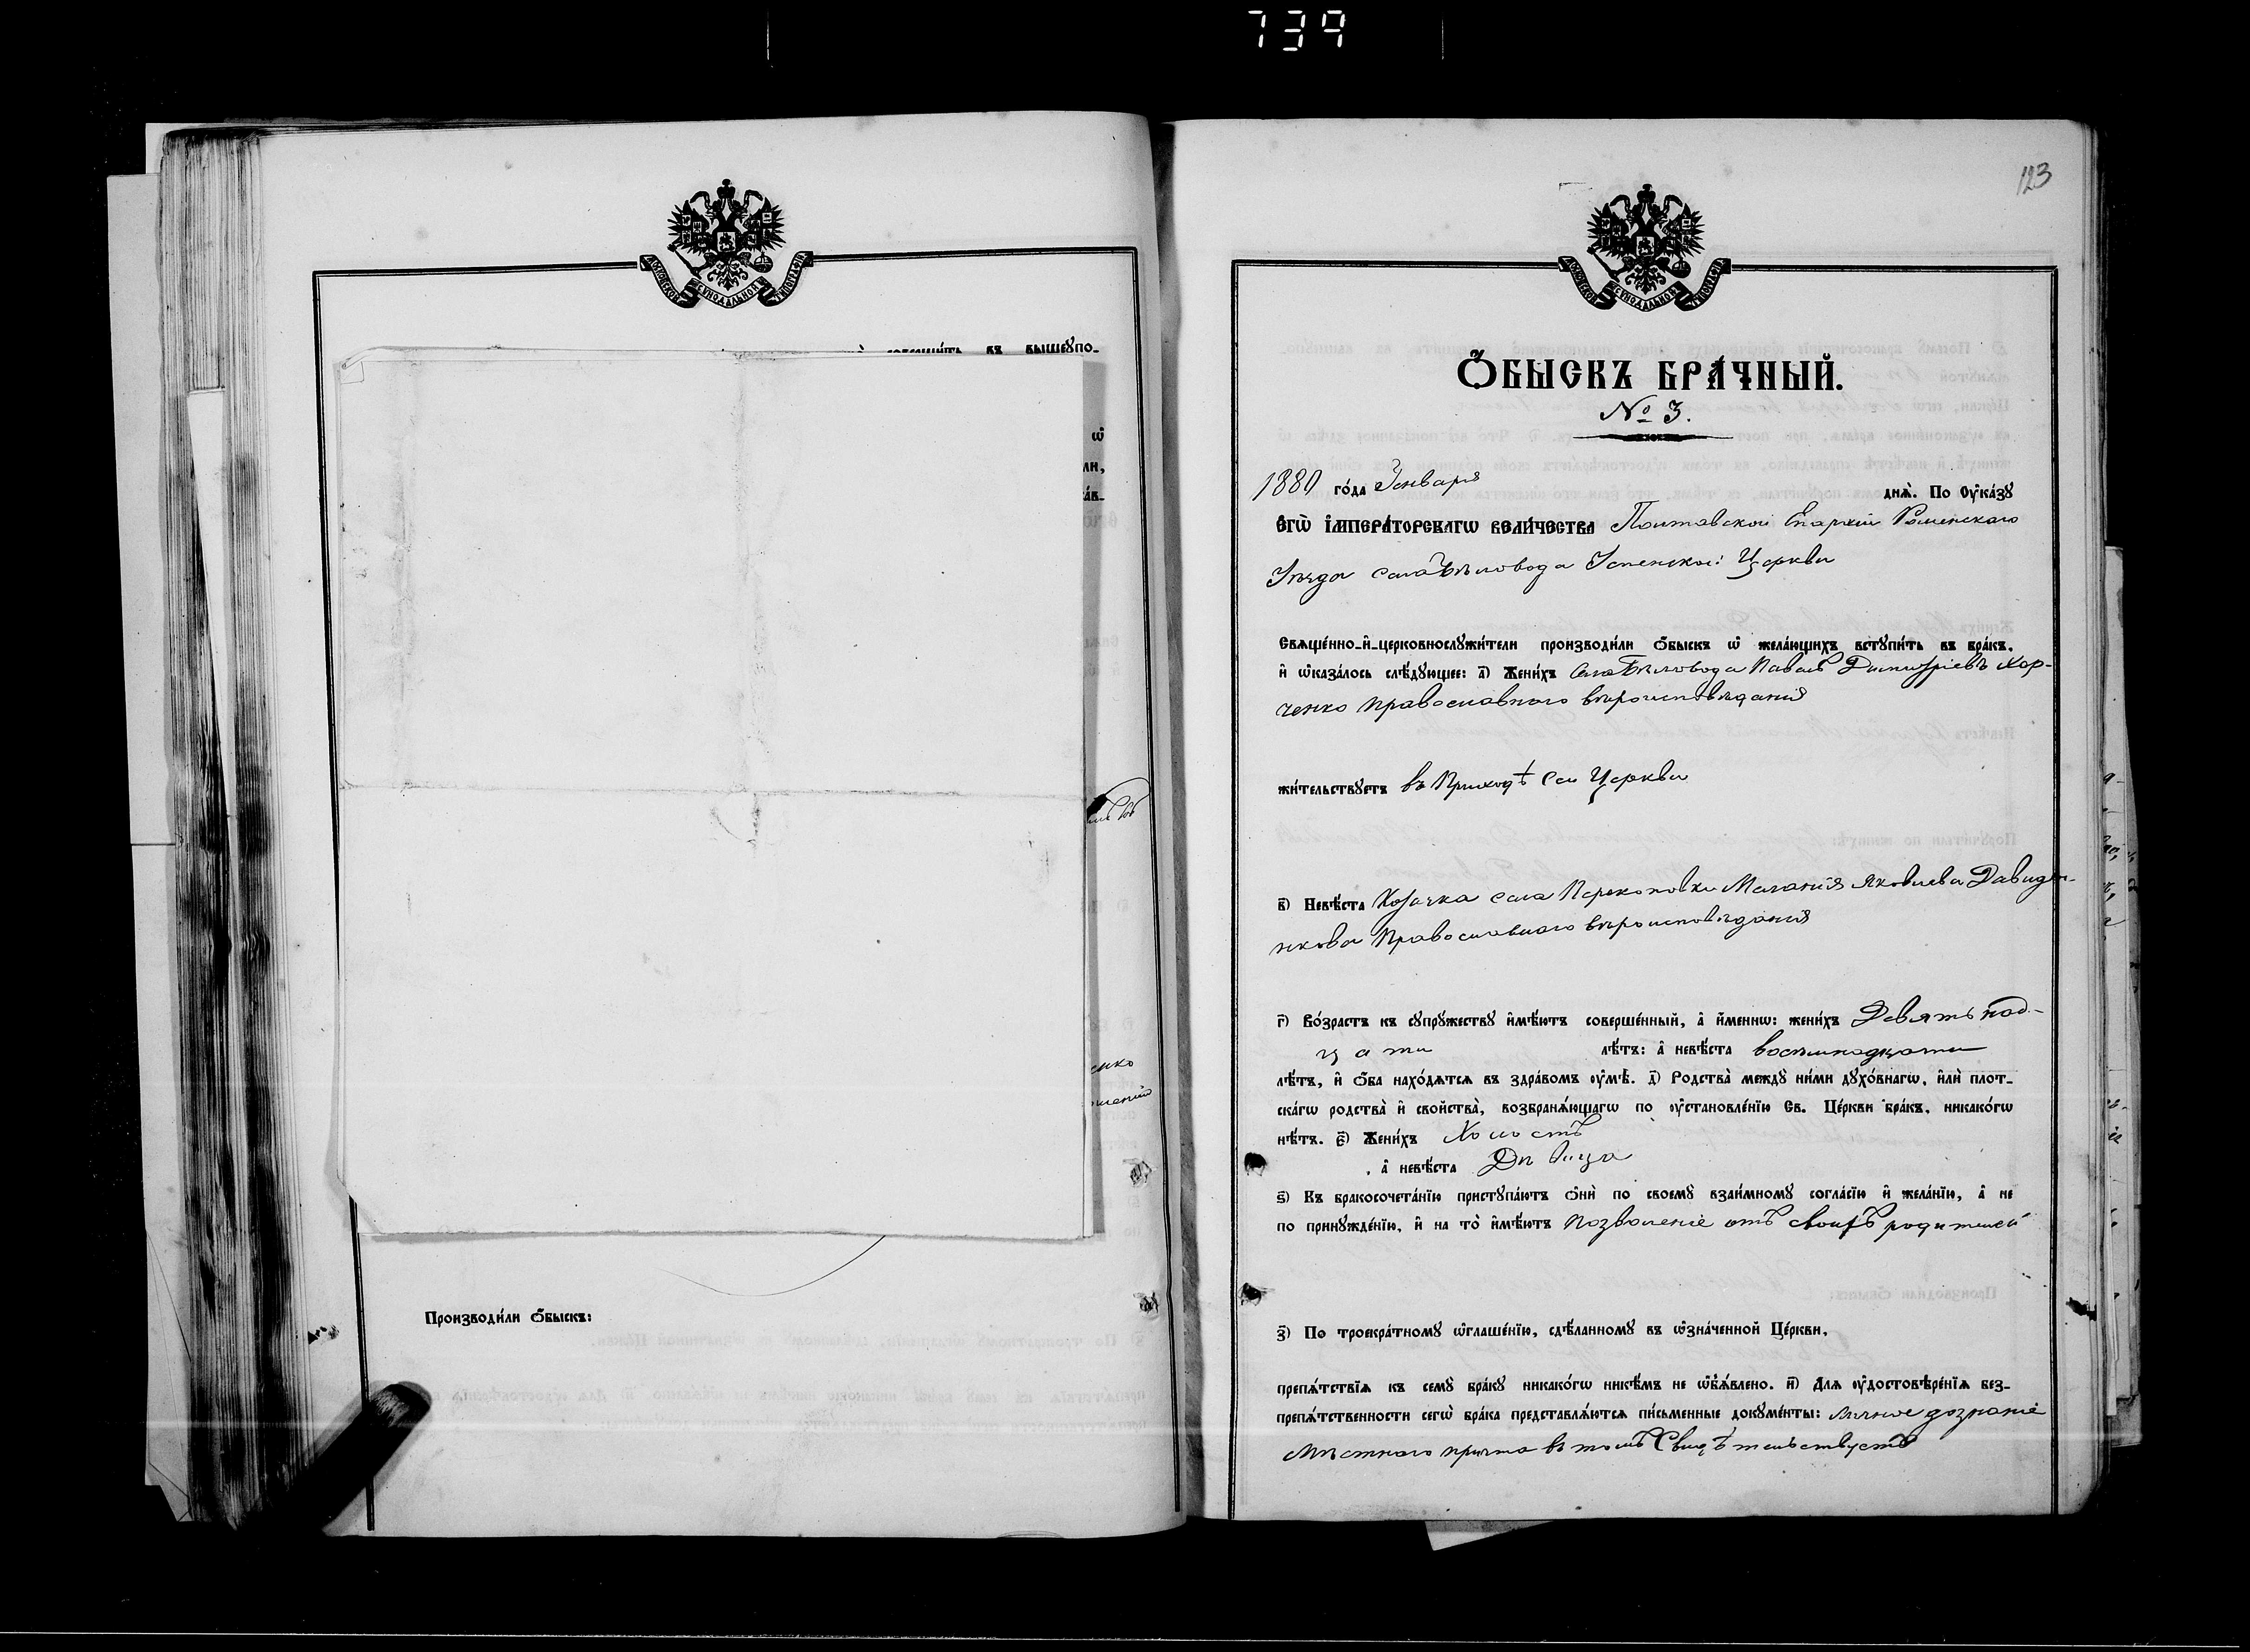 739
МОСКОВСКОЙ СѴНОДАЛЬНОЙ ТИПОГРАФІИ
совершить въ вышеупо-
ѡ
ли,
енко
Производи́ли ѻбыскъ:
123
МОСКОВСКОЙ СѴНОДАЛЬНОЙ ТИПОГРАФІИ
Ѻ҆БЫСКЪ БРА́ЧНЫЙ.
№ 3.
1880 го́да Января днѧ̀. По Оу҆ка́зꙋ
Є҆гѡ̀ І҆мпера́торскагѡ Вели́чества Полтавской Епархіи Роменскаго
Уѣзда села Бѣловода Успенской Церкви
Свѧще́нно-и҆-церковнослꙋжи́тели производи́ли ѻ҆быскъ ѡ҆ жела́ющихъ встꙋпи́ть въ бра́къ,
и҆ ѡ҆каза́лось слѣ́дꙋющее: а҃) Жени́хъ села Бѣловода Павелъ Димитріевъ Хар-
ченко православнаго вѣроисповѣданія
жи́тельствꙋетъ въ Приходѣ сей Церкви
в҃) Невѣ́ста Козачка села Перекоповки Меланія Яковлева Давиде-
нкова Православнаго вѣроисповѣданія
г҃) Во́зрастъ къ сꙋпрꙋ́жествꙋ и҆мѣ́ютъ соверше́нный, а҆ и҆́меннѡ: жени́хъ Девятьнад-
цати лѣ́тъ: а҆ невѣ́ста восемнадцати
лѣ́тъ, и҆ ѻ҆́ба нахо́дѧтсѧ въ здра́вомъ оу҆мѣ̀. д҃) Родства̀ междꙋ̀ ни́ми дꙋхо́внагѡ, и҆лѝ плот-
ска́гѡ родства̀ и҆ сво́йства, возбранѧ́ющагѡ по оу҆становле́нїю Св. Це́ркви бра́къ, никако́гѡ
нѣ́тъ. є҃) Жени́хъ Холостъ
, а҆ невѣ́ста Дѣвица
ѕ҃) Къ бракосочета́нїю пристꙋпа́ютъ ѻ҆нѝ по своемꙋ̀ взаи́мномꙋ согла́сїю и҆ жела́нїю, а҆ не
по принꙋжде́нїю, и҆ на то̀ и҆мѣ́ютъ позволеніе отъ своихъ родителей
з҃) По троекра́тномꙋ ѡ҆глаше́нїю, сдѣ́ланномꙋ въ ѡ҆зна́ченной Це́ркви,
препѧ́тствїѧ къ семꙋ̀ бра́кꙋ никако́гѡ никѣ́мъ не ѡ҆б̾ѧ́влено. и҃) Для оу҆достовѣре́нїѧ без-
препѧ́тственности сегѡ̀ бра́ка представлѧ́ютсѧ пи́сьменные докꙋме́нты: личное дознаніе
мѣстнаго причта въ томъ Свидѣтельствуетъ